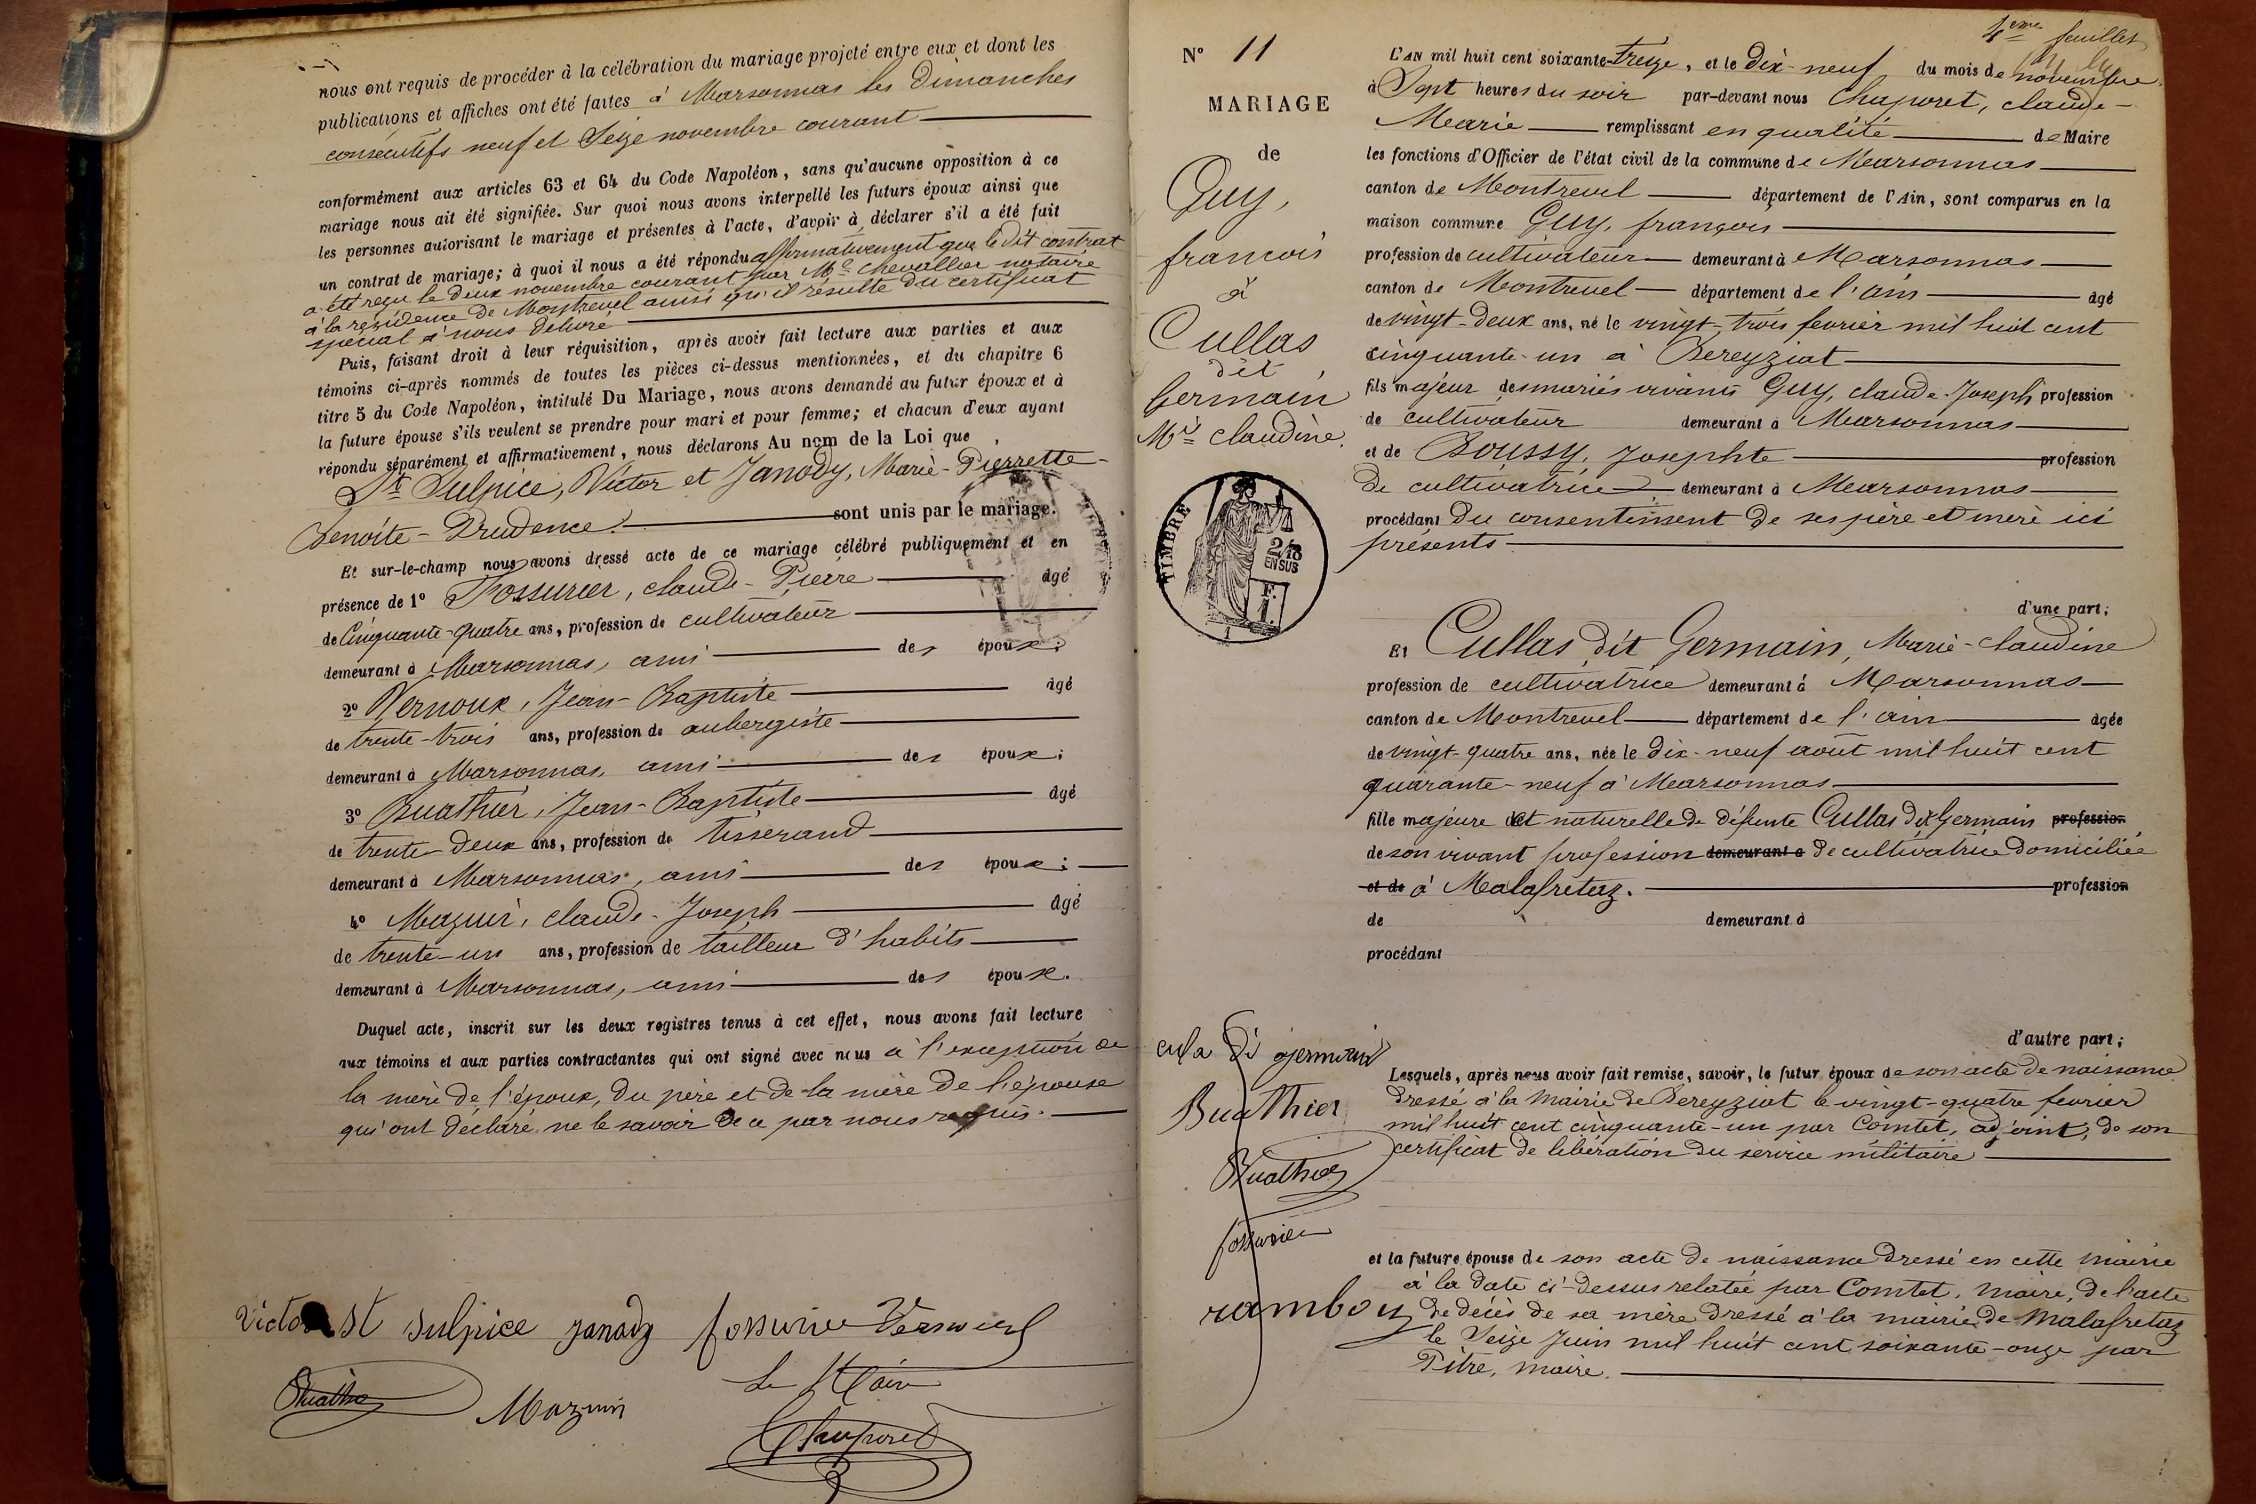 nous ont requis de procéder à la célébration du mariage projeté entre eux et dont les
publications et affiches ont été faites à Marsonnas les Dimanches
consécutifs neuf et Seize novembre courant
conformément aux articles 63 et 64 du Code Napoléon, sans qu'aucune opposition à ce
mariage nous ait été signifiée. Sur quoi nous avons interpellé les futurs époux ainsi que
les personnes autorisant le mariage et présentes à l'acte, d'avoir à déclarer s'il a été fait
un contrat de mariage; à quoi il nous a été répondu affirmativement que le dit contrat
a été reçu le deux novembre courant par Me Chevallier notaire
à la résidence de Montrevel ainsi qu'il résulte du certificat
spécial à nous délivré
Puis, faisant droit à leur réquisition, après avoir fait lecture aux parties et aux
témoins ci-après nommés de toutes les pièces ci-dessus mentionnées, et du chapitre 6
titre 5 du Code Napoléon, intitulé Du Mariage, nous avons demandé au futur époux et à
la future épouse s'ils veulent se prendre pour mari et pour femme; et chacun d'eux ayant
répondu séparément et affirmativement, nous déclarons Au nom de la Loi que
St Sulpice, Victor et Janody, Marie-Pierrette-
Benoite-Prudence. sont unis par le mariage.
Et sur-le-champ nous avons dressé acte de ce mariage célébré publiquement et en
présence de 1° Fossurier, claude-Pierre âgé
de Cinquante-quatre ans, profession de cultivateur
demeurant à Marsonnas, ami des époux;
2° Vernoux, Jean-Baptiste âgé
de trente-trois ans, profession de aubergiste
demeurant à Marsonnas, ami des époux;
3° Buathier, Jean-Baptiste âgé
de trente-deux ans, profession de tisserand
demeurant à Marsonnas, ami des époux;
4° Mazuir, claude-Joseph âgé
de trente-un ans, profession de tailleur d'habits
demeurant à Marsonnas, ami des époux.
Duquel acte, inscrit sur les deux registres tenus à cet effet, nous avons fait lecture
aux témoins et aux parties contractantes qui ont signé avec nous à l'exception de
la mère de l'époux, du père et de la mère de l'épouse
qui ont déclaré ne le savoir de ce par nous requis.
Victor St Sulpice janody fossurier Vernoux
Le Maire
Buathier Mazuir
Chaporet
4eme feuillet
N° 11
MARIAGE
de
Guy,
françois
à
Cullas
dit
Germain
Mie claudine.
TIMBRE
2/10
EN SUS
F.
1.
cula di germain
Buathier
Buathier
fossurier
rambouz
L'AN mil huit cent soixante-treize, et le dix-neuf du mois de novembre
à Sept heures du soir par-devant nous Chaporet, claude-
Marie remplissant en qualité de Maire
les fonctions d'Officier de l'état civil de la commune de Marsonnas
canton de Montrevel département de l'Ain, sont comparus en la
maison commune Guy, françois
profession de cultivateur demeurant à Marsonnas
canton de Montrevel département de l'ain âgé
de vingt-deux ans, né le vingt-trois fevrier mil huit cent
cinquante-un à Bereyziat
fils majeur des mariés vivants Guy, claude-Joseph profession
de cultivateur demeurant à Marsonnas
et de Boussy, Josephte profession
de cultivatrice demeurant à Marsonnas
procédant du consentement de ses père et mère ici
présents
d'une part;
Et Cullas dit Germain, Marie-claudine
profession de cultivatrice demeurant à Marsonnas
canton de Montrevel département de l'ain âgée
de vingt-quatre ans, née le dix-neuf août mil huit cent
quarante-neuf à Marsonnas
fille majeure et naturelle de défunte Cullas dit Germain profession
de son vivant profession demeurant à de cultivatrice domiciliée
et de à Malafretaz. profession
de demeurant à
procédant
d'autre part;
Lesquels, après nous avoir fait remise, savoir, le futur époux de son acte de naissance
dressé à la Mairie de Bereyziat le vingt-quatre fevrier
mil huit cent cinquante-un par Comtet, adjoint, de son
certificat de libération du service militaire
et la future épouse de son acte de naissance dressé en cette mairie
à la date ci-dessus relatée par Comtet, maire, de l'acte
de décès de sa mère dressé à la mairie de Malafretaz
le Seize Juin mil huit cent soixante-onze par
Pitre, maire.